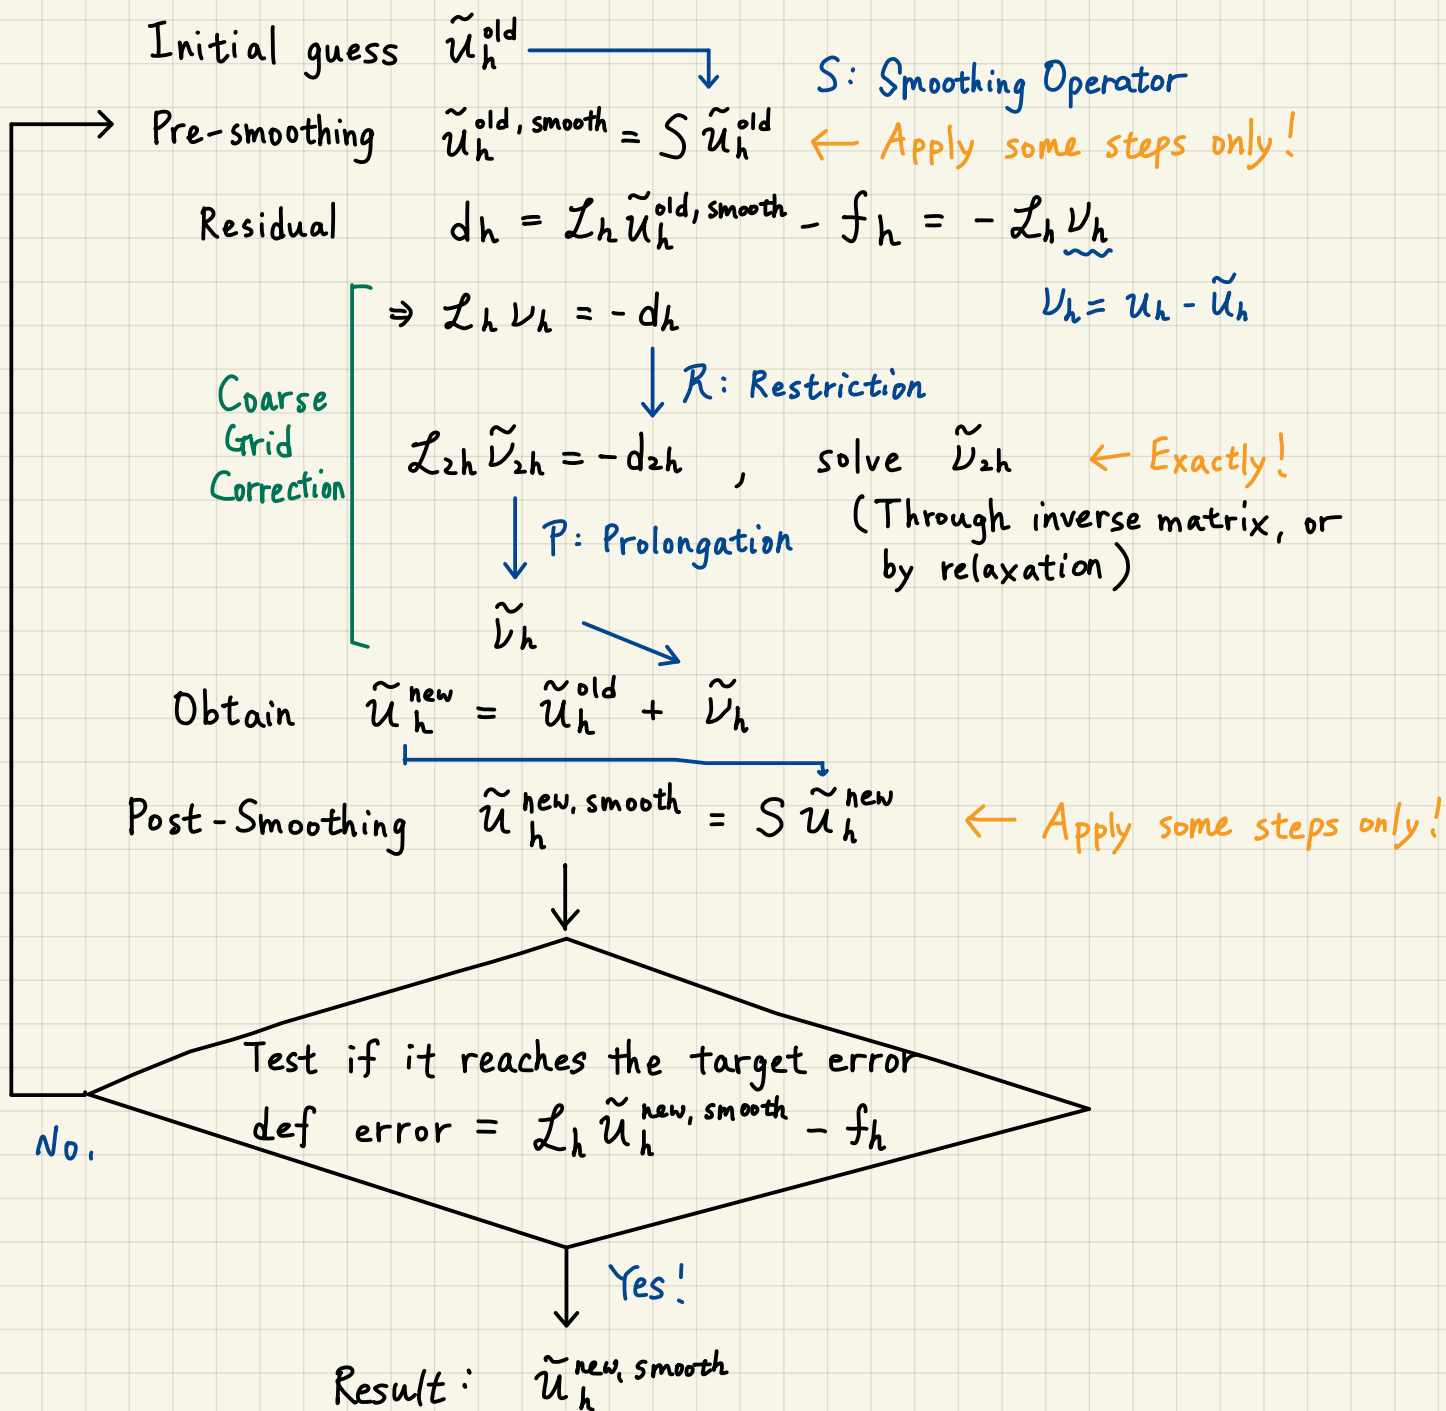 Initial guess ũ_h^old
S: Smoothing Operator
Pre-smoothing ũ_h^{old, smooth} = S ũ_h^old ← Apply some steps only!
Residual d_h = ℒ_h ũ_h^{old, smooth} - f_h = - ℒ_h ν_h
ν_h = u_h - ũ_h
⇒ ℒ_h ν_h = - d_h
R: Restriction
Coarse
Grid
Correction
ℒ_2h ν̃_2h = - d_2h , solve ν̃_2h ← Exactly!
(Through inverse matrix, or
by relaxation)
P: Prolongation
ν̃_h
Obtain ũ_h^new = ũ_h^old + ν̃_h
Post-Smoothing ũ_h^{new, smooth} = S ũ_h^new ← Apply some steps only!
Test if it reaches the target error
def error = ℒ_h ũ_h^{new, smooth} - f_h
No.
Yes!
Result: ũ_h^{new, smooth}